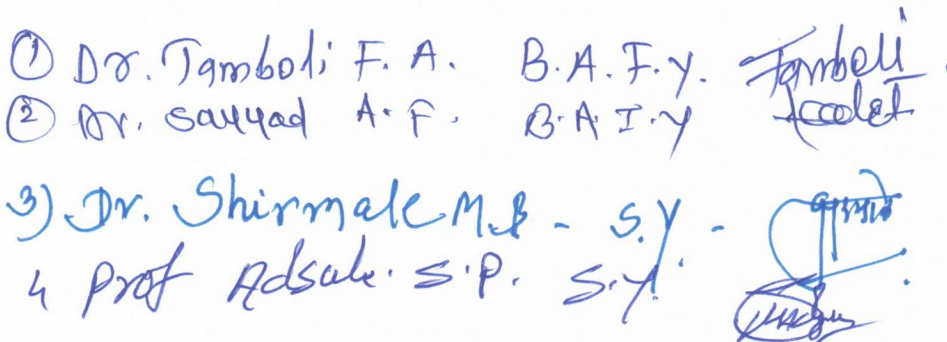 ① Dr. Tamboli F. A. B.A.F.Y. Tamboli
② Dr. Sayyad A.F. B.A I.Y
3) Dr. Shirmale M.B - S.Y -
4 Prof Adsule. S.P. S.Y.